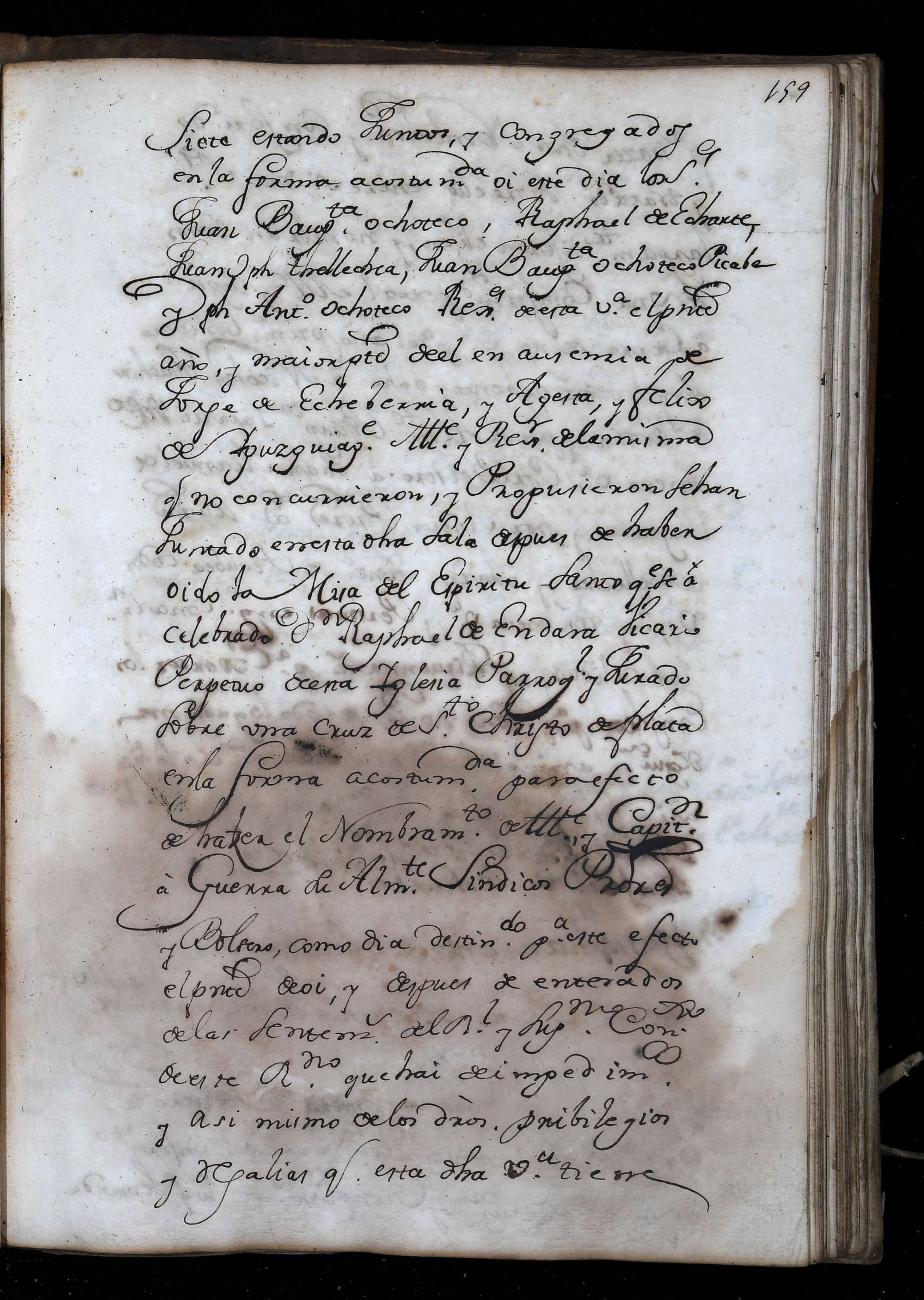 159
Siete estando Juntos, y Congregados
en la forma acostumda. oi este dia los Ses.
Juan Baupta. ochoteco, Raphael de Echarte,
Juan Jph threllechea, Juan Baupta ochoteco Picabe
y Jph Anto. ochoteco Rexes. de esta va. el pnte
año, y maior pte de el en ausencia de
Jorge de Echeberria, y Agesta, y felix
de Yguzguiage. Alle. y Rexr. de la misma
q. no concurrieron, y Propusieron Sehan
Juntado en esta dha Sala depues de haber
oido la Misa del Espiritu Santo qe. se à
Celebrado Dn Raphael de Endara Vicario
Perpetuo de esta Iglesia Parroql. y Jurado
sobre una Cruz de Sto. Christo de plata
en la forma acostumda. para efecto
de haber el Nombramto. de Alle, y Capitn.
à Guerra su Almte. Sindicos Prores
y Bolsero, como dia destindo. pa. este efecto
el pnte de oi, y despues de enterados
de las Sentens. del Rl. y Supmo. Con.
de este Rno. que hai de impedim.
y asi mismo de los dròs. pribilegios
y regalias q. esta dha va. tiene